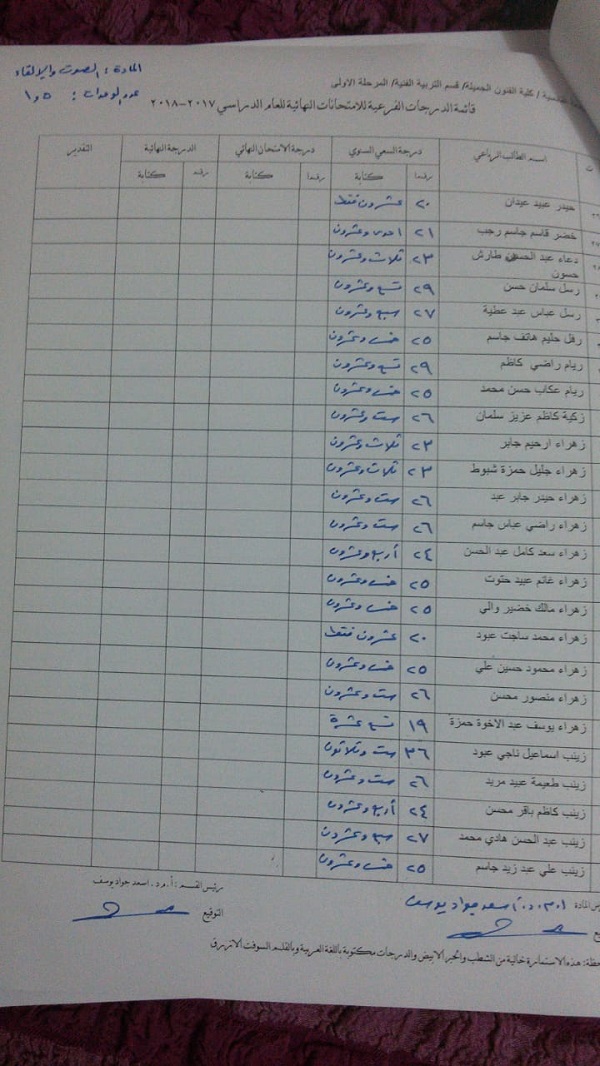 المادة : الصوت والالقاء
عدد الوحدات : ١٫٥
/ كلية الفنون الجميلة/ قسم التربية الفنية/ المرحلة الاولى
قائمة الدرجات الفرعية للامتحانات النهائية للعام الدراسي ٢٠١٧-٢٠١٨
ت اسم الطالب الرباعي درجة السعي السنوي درجة الامتحان النهائي الدرجة النهائية التقدير
رقما كتابة رقما كتابة رقما كتابة
حيدر عبيد عيدان ٢٠ عشرون فقط
خضر قاسم جاسم رجب ٢١ احدى وعشرون
دعاء عبد الحسين طارش حسون ٢٣ ثلاث وعشرون
رسل سلمان حسن ٢٩ تسع وعشرون
رسل عباس عبد عطية ٢٧ سبع وعشرون
رفل حليم هاتف جاسم ٢٥ خمس وعشرون
ريام راضي كاظم ٢٩ تسع وعشرون
ريام عكاب حسن محمد ٢٥ خمس وعشرون
زكية كاظم عزيز سلمان ٢٦ ست وعشرون
زهراء ارحيم جابر ٢٣ ثلاث وعشرون
زهراء جليل حمزة شبوط ٢٣ ثلاث وعشرون
زهراء حيدر جابر عبد ٢٦ ست وعشرون
زهراء راضي عباس جاسم ٢٦ ست وعشرون
زهراء سعد كامل عبد الحسن ٢٤ أربع وعشرون
زهراء غانم عبيد حتوت ٢٥ خمس وعشرون
زهراء مالك خضير والي ٢٥ خمس وعشرون
زهراء محمد ساجت عبود ٢٠ عشرون فقط
زهراء محمود حسين علي ٢٥ خمس وعشرون
زهراء منصور محسن ٢٦ ست وعشرون
زهراء يوسف عبد الاخوة حمزة ١٩ تسع عشرة
زينب اسماعيل ناجي عبود ٣٦ ست وثلاثون
زينب طعيمة عبيد مريد ٢٦ ست وعشرون
زينب كاظم باقر محسن ٢٤ أربع وعشرون
زينب عبد الحسن هادي محمد ٢٧ سبع وعشرون
زينب علي عبد زيد جاسم ٢٥ خمس وعشرون
المادة أ.م.د. اسعد جواد يوسف
رئيس القسم : أ.م.د. اسعد جواد يوسف
التوقيع
هذه الاستمارة خالية من الشطب والحبر الابيض والدرجات مكتوبة باللغة العربية وبالقلم السوفت الازرق